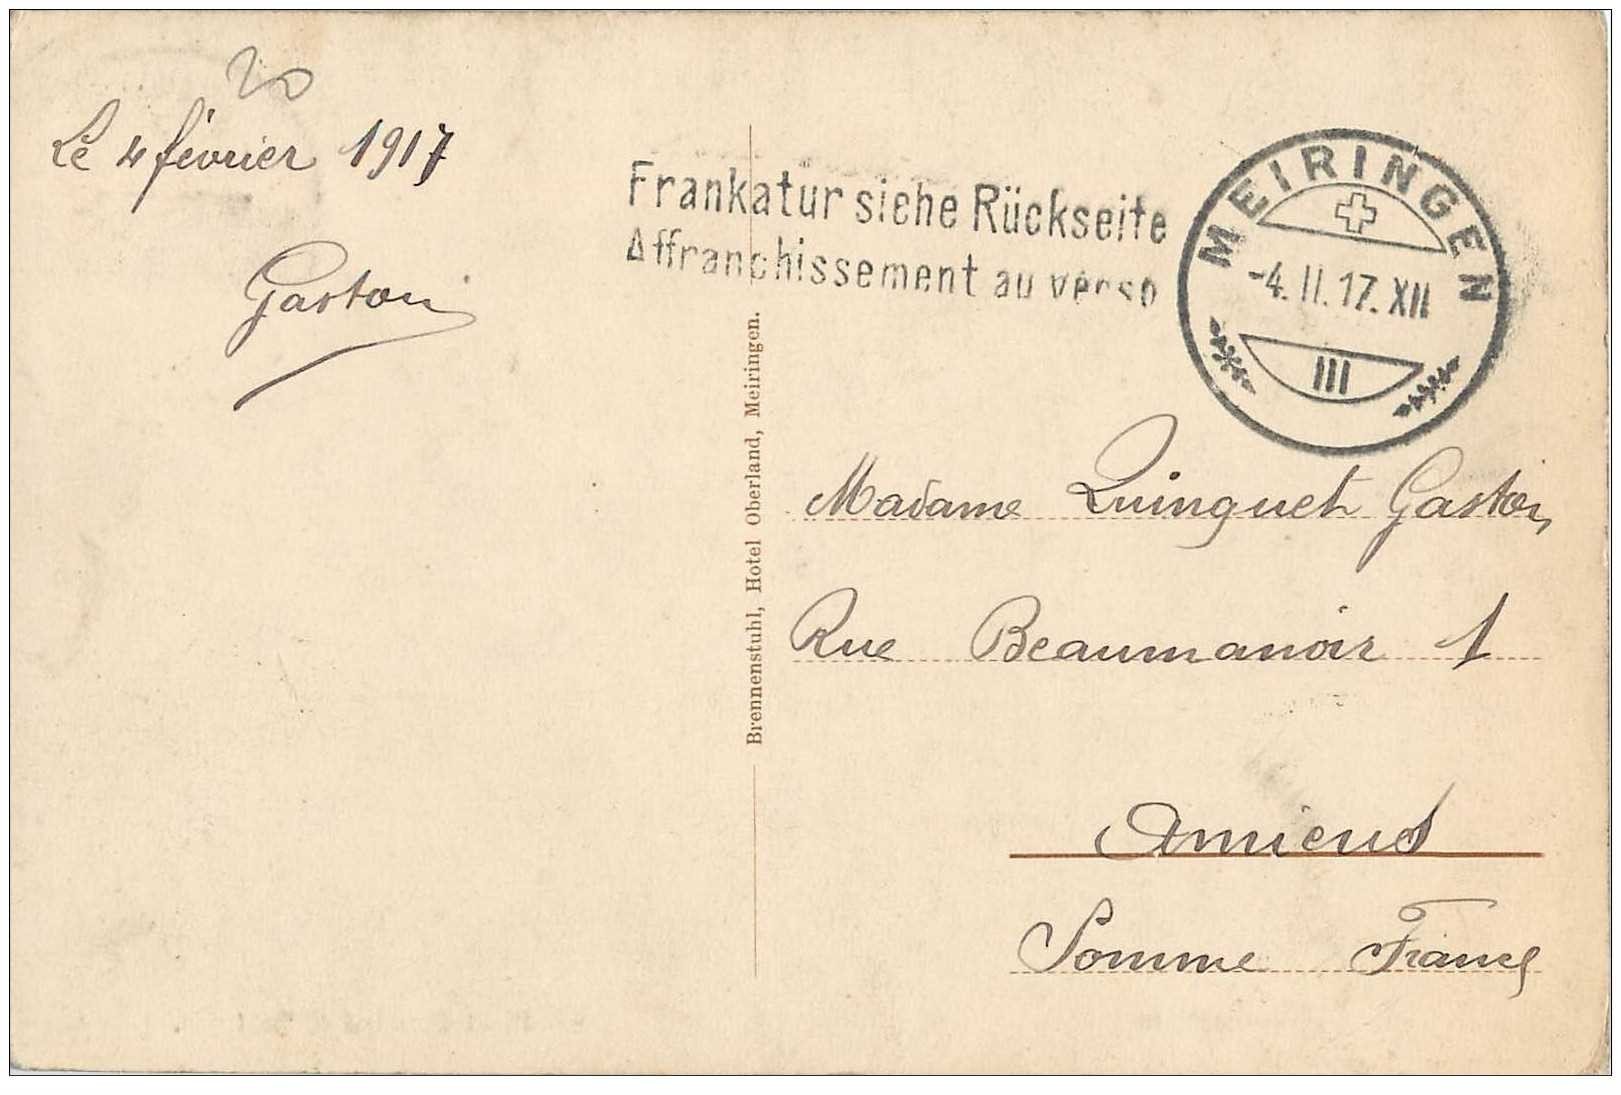 20
Le 4 février 1917
Gaston
Frankatur siehe Rückseite
Affranchissement au verso
MEIRINGEN
-4. II. 17. XII
III
Brennenstuhl, Hotel Oberland, Meiringen.
Madame Quinquet Gaston
Rue Beaumanoir 1
Amiens
Somme France